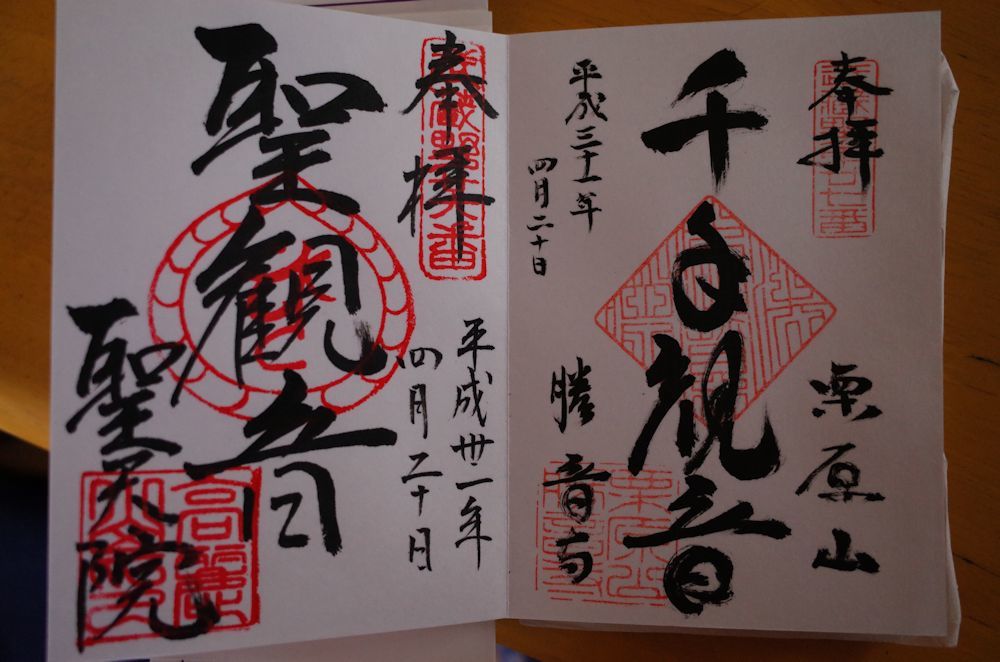 奉拝
栗原山
千手観音
平成三十一年
四月二十日
勝音寺
奉拝
聖観音
平成卅一年
四月二十日
聖天院
高麗